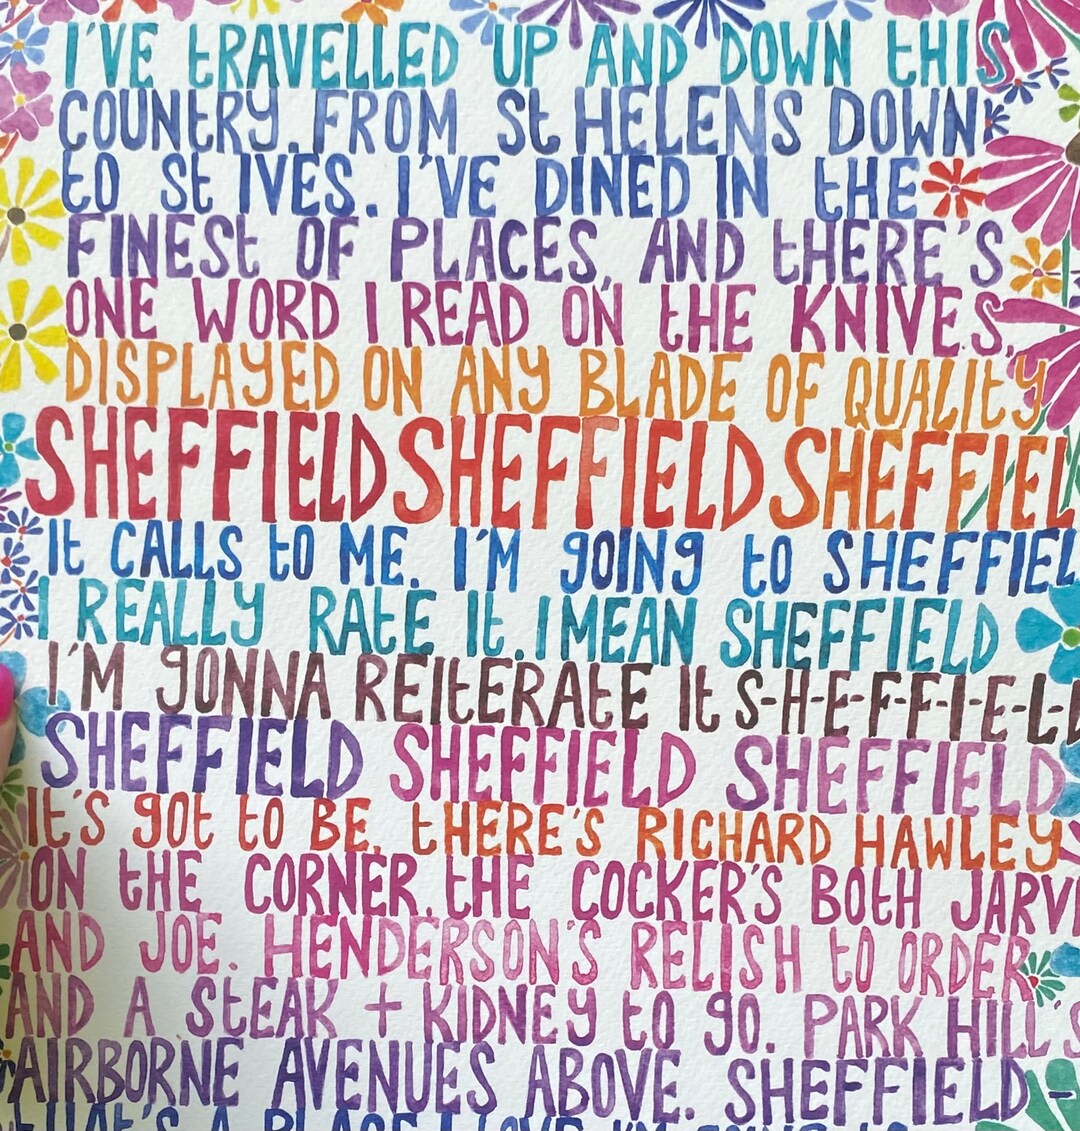 I'VE tRAVELLED UP AND DOWN tHIS
COUNtRY. FROM St HELENS DOWN
tO St IVES. I'VE DINED IN tHE
FINESt OF PLACES, AND tHERE'S
ONE WORD I READ ON tHE KNIVES,
DISPLAYED ON ANY BLADE OF QUALItY
SHEFFIELD SHEFFIELD SHEFFIEL
It CALLS tO ME. I'M gOINg tO SHEFFIEL
I REALLY RAtE It. I MEAN SHEFFIELD
I'M gONNA REItERAtE It S-H-E-F-F-I-E-L-
SHEFFIELD SHEFFIELD SHEFFIELD
It'S gOt tO BE. tHERE'S RICHARD HAWLEY
ON tHE CORNER. tHE COCKER'S BOtH JARVI
AND JOE. HENDERSON'S RELISH tO ORDER
AND A StEAK + KIDNEY tO gO. PARK HILL'S
AIRBORNE AVENUES ABOVE. SHEFFIELD -
tHAt'S A PLACE I LOVE I'M gOINg tO